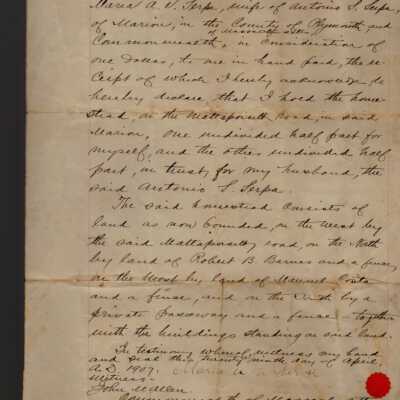 Maria A. S. Serpa, wife of Antonio S. Serpa,
of Marion, in the County of Plymouth and
of Massachusetts
Commonwealth, in consideration of
one Dollar, to me in hand paid, the re-
ceipt of which I hereby acknowledge do
hereby declare, that I hold the home-
stead, on the Mattapoisett road, in said
Marion, one undivided half part for
myself, and the other undivided half
part, in trust, for my husband, the
said Antonio S. Serpa.
The said homestead consists of
land as now bounded, on the West by
the said Mattapoisett road, on the North
by land of Robert B. Barnes and a fence,
on the West by land of Manuel Costa
and a fence, and on the South by a
private passway and a fence - together
with the buildings standing on said land.
In testimony whereof witness my hand
and seal this twenty ninth day of April,
A.D. 1907. Maria
Witness-
John
Commonwealth of